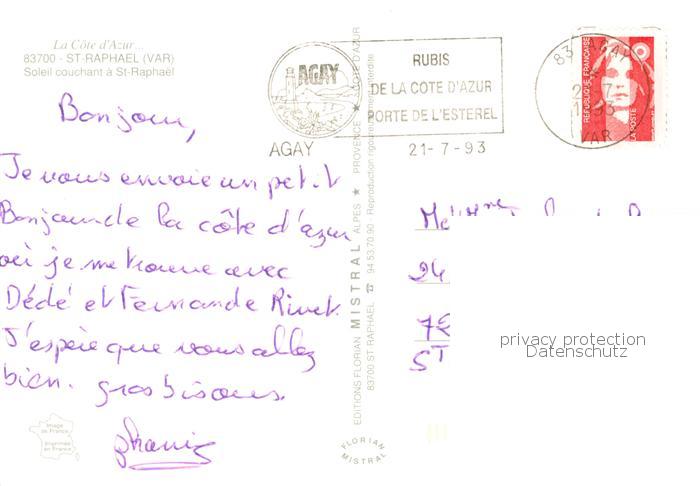 La Côte d'Azur...
83700 - ST-RAPHAEL (VAR)
Soleil couchant à St-Raphaël
AGAY
AGAY
RUBIS
DE LA COTE D'AZUR
PORTE DE L'ESTEREL
21-7-93
83 AGAY
21-7
93
VAR
REPUBLIQUE FRANÇAISE
LA POSTE
Bonjour,
Je vous envoie un petit
Bonjour de la côte d'azur
où je me trouve avec
Dédé et Fernande Rivet.
J'espère que vous allez
bien. gros bisous.
EDITIONS FLORIAN MISTRAL ALPES ★ PROVENCE ★ COTE D'AZUR
83700 ST RAPHAEL ☎ 94.53.70.90 - Reproduction rigoureusement interdite
24
ST
privacy protection
Datenschutz
Image
de France
Imprimée
en France
FLORIAN
MISTRAL